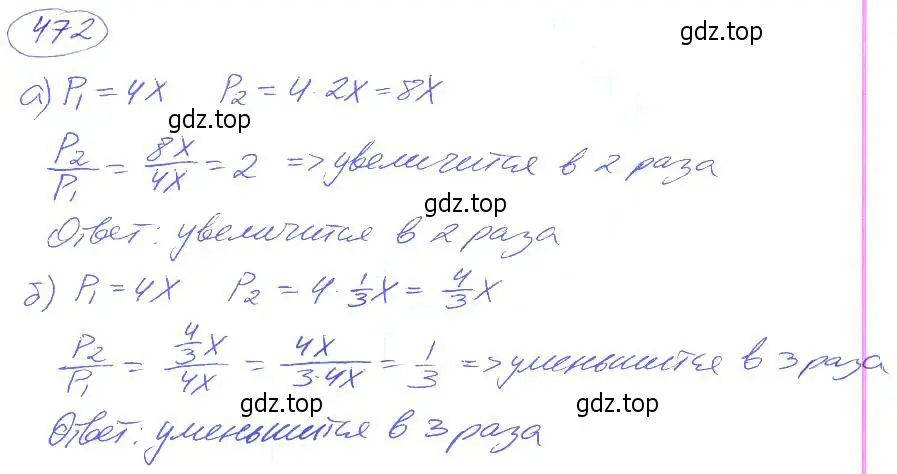 472
gdz.top
а) P₁ = 4x P₂ = 4 · 2x = 8x
gdz.top
P₂/P₁ = 8x/4x = 2 => увеличится в 2 раза
gdz.top
Ответ: увеличится в 2 раза
б) P₁ = 4x P₂ = 4 · 1/3 x = 4/3 x
P₂/P₁ = (4/3 x)/4x = 4x/(3·4x) = 1/3 => уменьшится в 3 раза
gdz.top gdz.top
Ответ: уменьшится в 3 раза